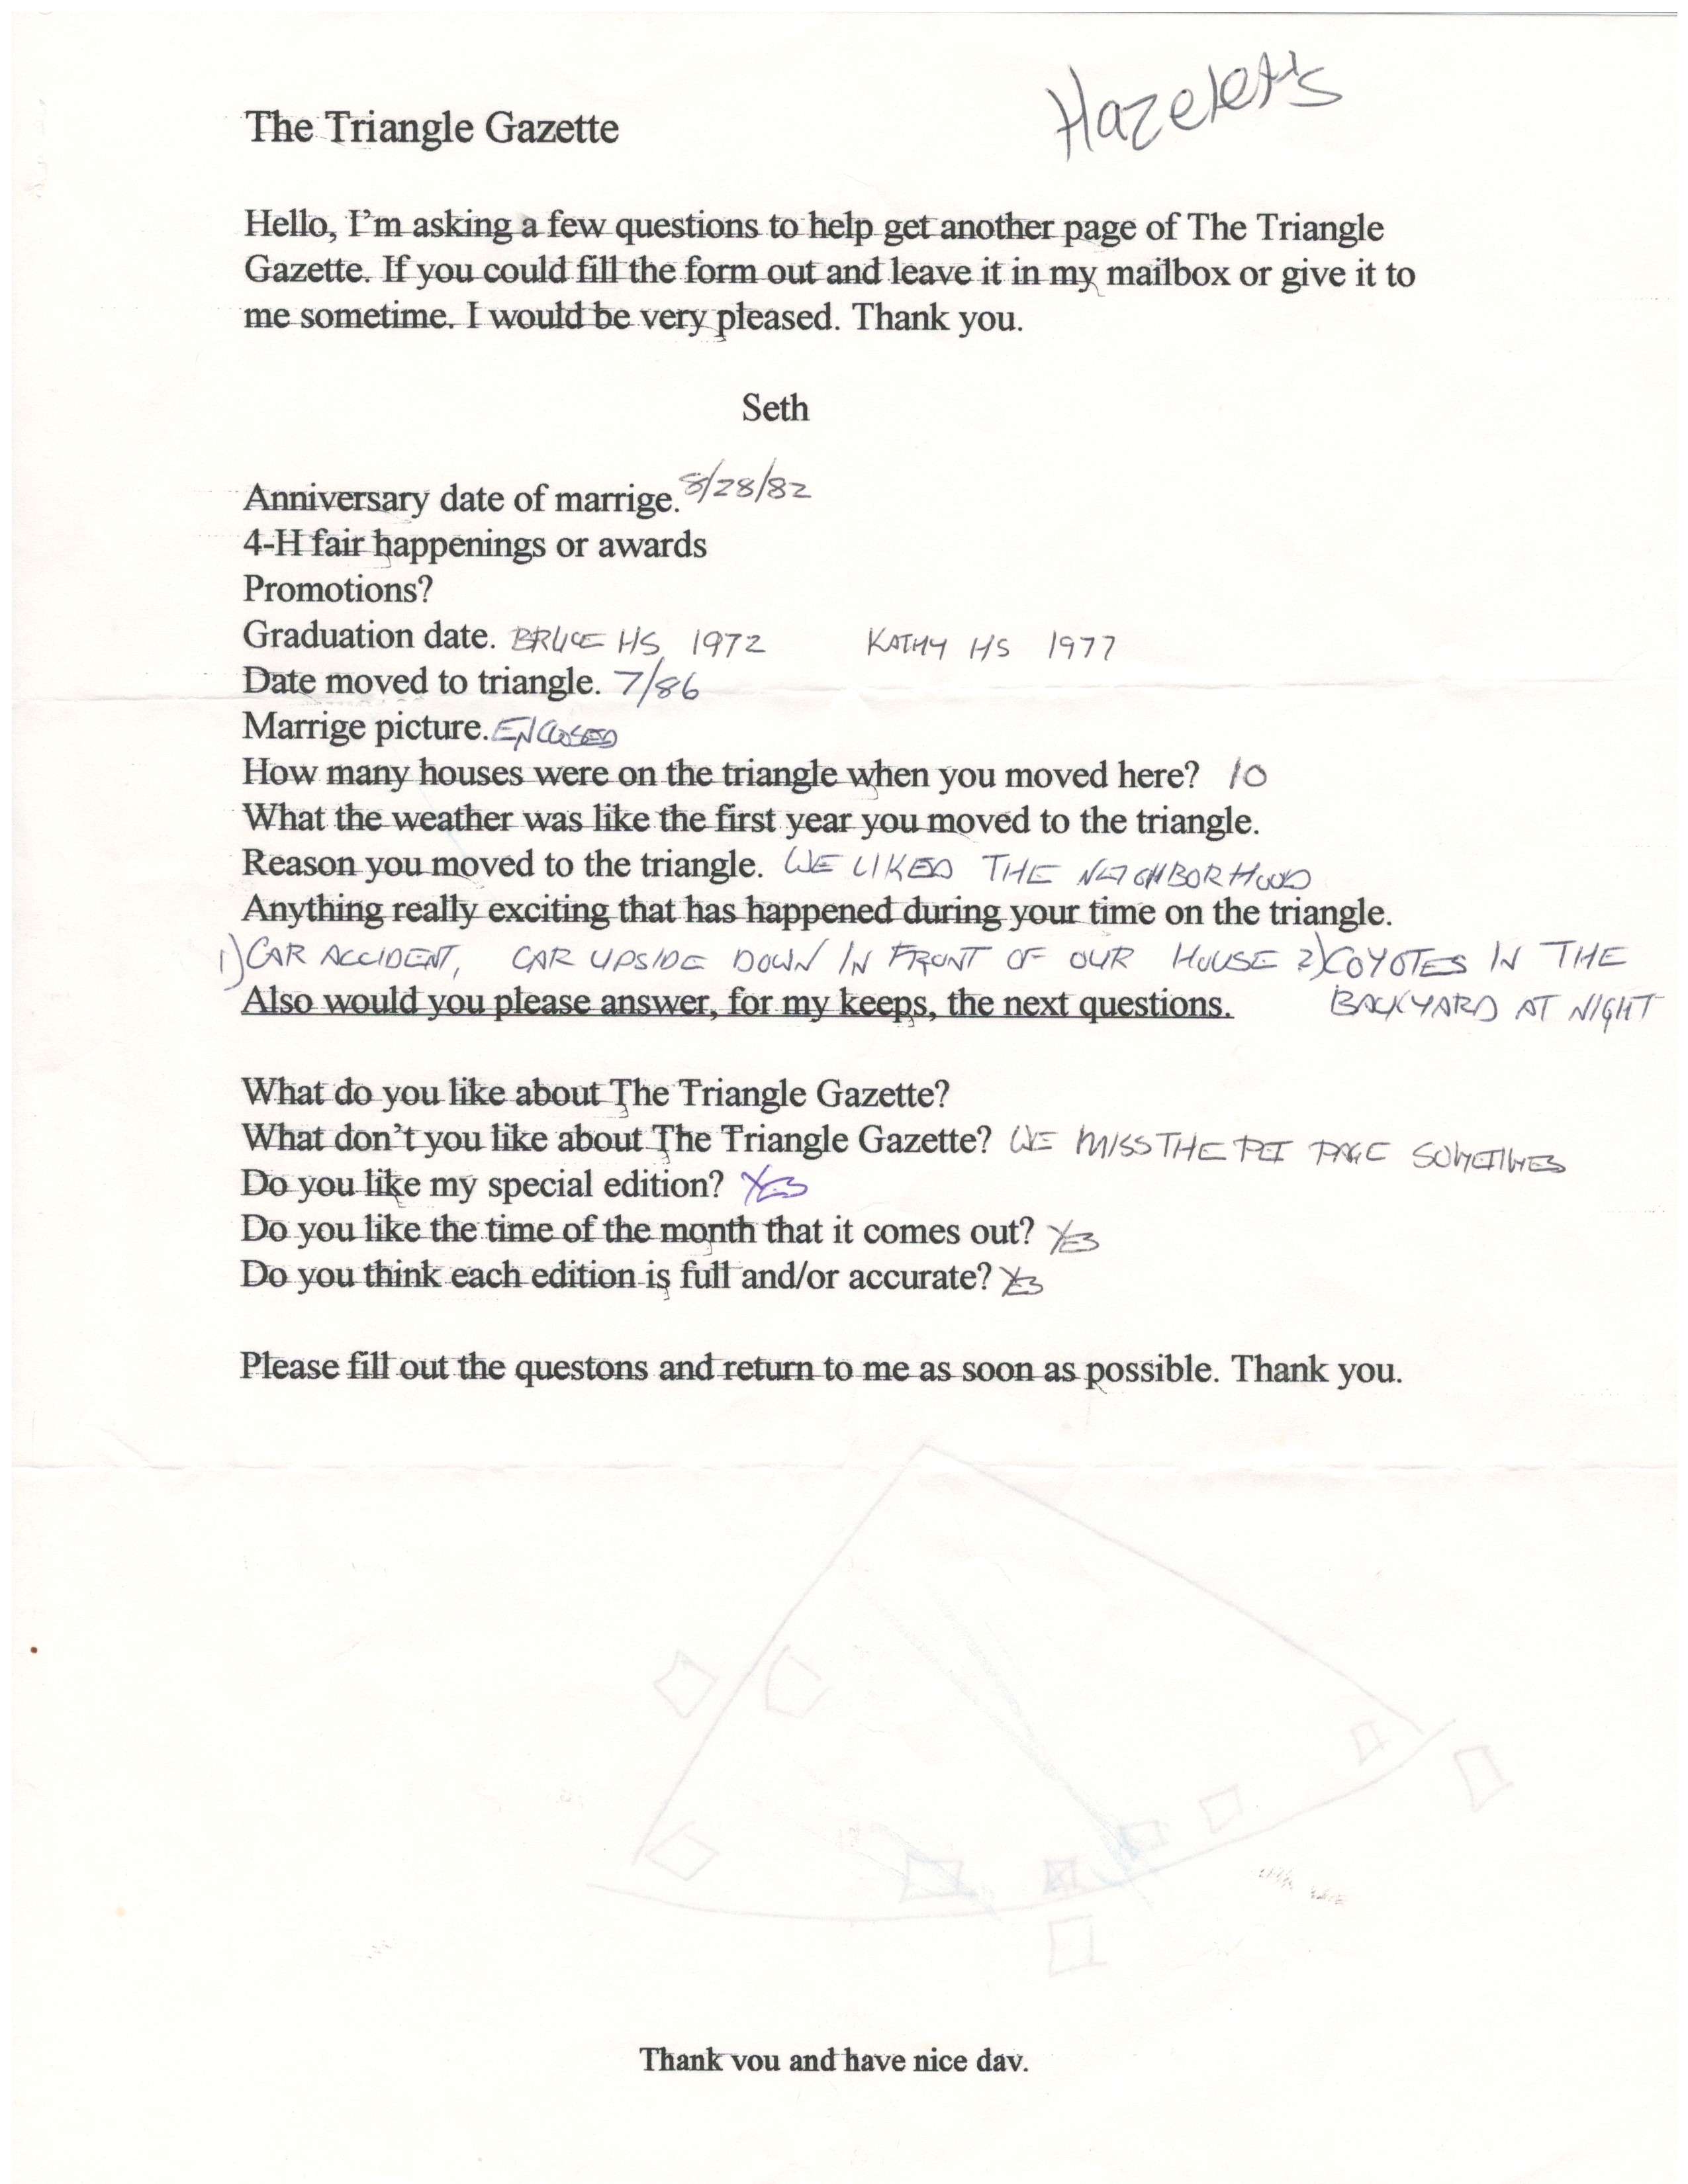 Hazelett's
The Triangle Gazette
Hello, I'm asking a few questions to help get another page of The Triangle
Gazette. If you could fill the form out and leave it in my mailbox or give it to
me sometime. I would be very pleased. Thank you.
Seth
Anniversary date of marrige. 8/28/82
4-H fair happenings or awards
Promotions?
Graduation date. BRUCE HS 1972 KATHY HS 1977
Date moved to triangle. 7/86
Marrige picture. ENCLOSED
How many houses were on the triangle when you moved here? 10
What the weather was like the first year you moved to the triangle.
Reason you moved to the triangle. WE LIKED THE NEIGHBORHOOD
Anything really exciting that has happened during your time on the triangle.
1) CAR ACCIDENT, CAR UPSIDE DOWN IN FRONT OF OUR HOUSE 2) COYOTES IN THE
BACKYARD AT NIGHT
Also would you please answer, for my keeps, the next questions.
What do you like about The Triangle Gazette?
What don't you like about The Triangle Gazette? WE MISS THE PET PAGE SOMETIMES
Do you like my special edition? YES
Do you like the time of the month that it comes out? YES
Do you think each edition is full and/or accurate? YES
Please fill out the questons and return to me as soon as possible. Thank you.
Thank you and have nice day.